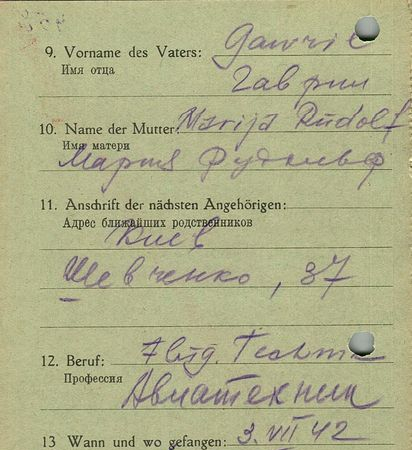 9. Vorname des Vaters: Gawril
Имя отца
Гаврил
10. Name der Mutter: Marija Rudolf
Имя матери
Мария Рудольф
11. Anschrift der nächsten Angehörigen:
Адрес ближайших родственников
Киев
Шевченко, 37
12. Beruf: Flug. Techni
Профессия
Авиатехник
13 Wann und wo gefangen: 3. VII 42